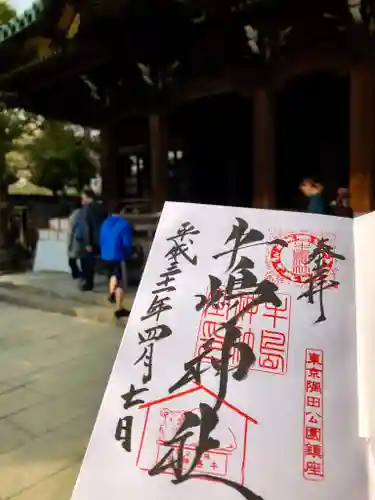 奉拝
牛嶋神社
平成三十一年四月七日
牛島神社
東京隅田公園鎮座